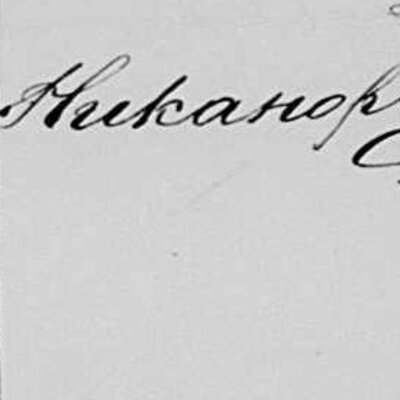 Никанор